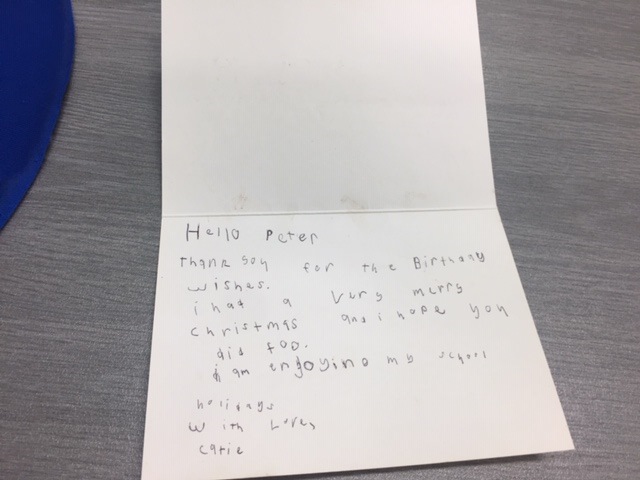 Hello Peter
Thank you for the Birthday
wishes.
i had a very merry
christmas and i hope you
did too.
i am enjoying my school
holidays
with Love,
catie